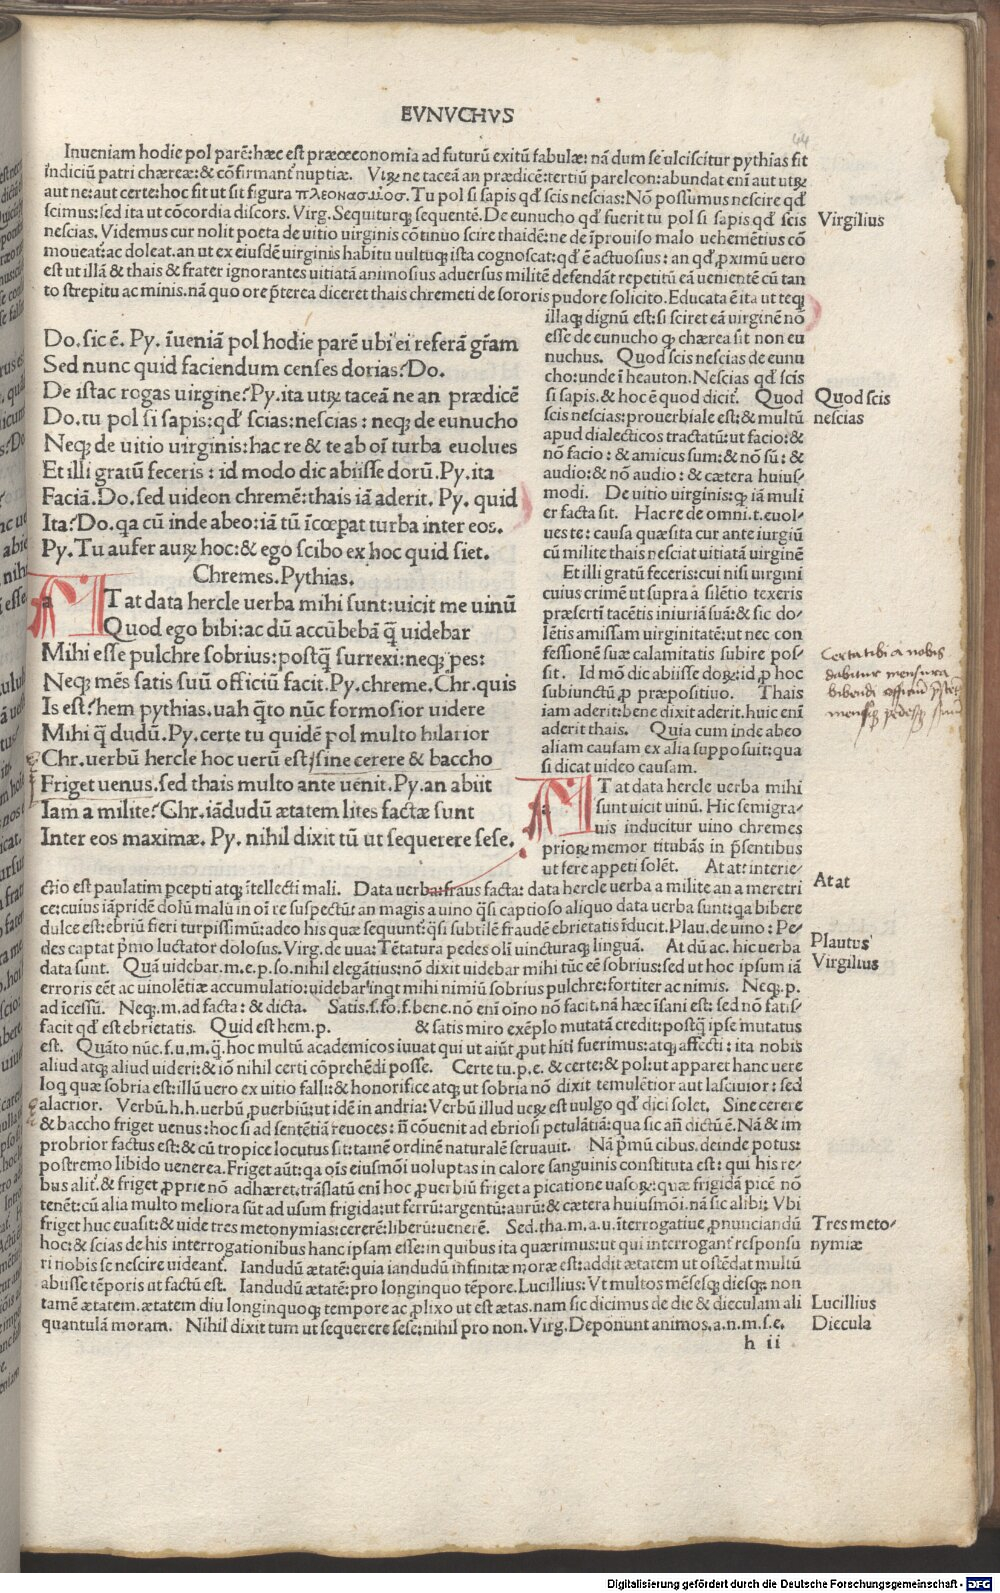 EVNVCHVS
44
Inueniam hodie pol parē: hæc est præoeconomia ad futurū exitū fabulæ: nā dum se ulciscitur pythias fit
indiciū patri chæreæ: & cōfirmant̄ nuptiæ. Vtꝝ ne taceā an prædicē: tertiū parelcon: abundat eni aut utꝝ
aut ne: aut certe: hoc fit ut sit figura πλεονασμὸσ. Tu pol si sapis qd̓ scis nescias: Nō possumus nescire qd̓
scimus: sed ita ut cōcordia discors. Virg. Sequiturqꝫ sequentē. De eunucho qd̓ fuerit tu pol si sapis qd̓ scis
nescias. Videmus cur nolit poeta de uitio uirginis cōtinuo scire thaidē: ne de īprouiso malo uehemētius cō
moueat̄: ac doleat. an ut ex eiusdē uirginis habitu uultuqꝫ ista cognoscat: qd̓ ē actuosius: an qd̓ ꝓximū uero
est ut illā & thais & frater ignorantes uitiatā animosius aduersus militē defendāt repetitū eā uenientē cū tan
to strepitu ac minis. nā quo ore p̄terea diceret thais chremeti de sororis pudore solicito. Educata ē ita ut teqꝫ
illaqꝫ dignū est: si sciret eā uirginē nō
esse de eunucho qꝫ chærea sit non eu
nuchus. Quod scis nescias de eunu
cho: unde ī heauton. Nescias qd̓ scis
si sapis. & hoc ē quod dicit̄. Quod
scis nescias: prouerbiale est: & multū
apud dialecticos tractatū: ut facio: &
nō facio: & amicus sum: & nō sū: &
audio: & nō audio: & cætera huius-
modi. De uitio uirginis: qꝫ iā muli
er facta sit. Hac re de omni. t. euol-
ues te: causa quæsita cur ante iurgiū
cū milite thais nesciat uitiatā uirginē
Et illi gratū feceris: cui nisi uirgini
cuius crimē ut supra a silētio texeris
præserti tacētis iniuriā suā: & sic do-
lētis amissam uirginitatē: ut nec con
fessionē suæ calamitatis subire pos-
sit. Id mō dic abiisse doꝝ: id ꝓ hoc
subiunctū ꝓ præpositiuo. Thais
iam aderit: bene dixit aderit. huic eni
aderit thais. Quia cum inde abeo
aliam causam ex alia supposuit: qua
si dicat uideo causam.
Do. sic ē. Py. īueniā pol hodie parē ubi ei referā gr̄am
Sed nunc quid faciendum censes dorias? Do.
De istac rogas uirgine? Py. ita utꝝ taceā ne an prædicē
Do. tu pol si sapis: qd̓ scias: nescias: neqꝫ de eunucho
Neqꝫ de uitio uirginis: hac re & te ab oī turba euolues
Et illi gratū feceris: id modo dic abiisse dorū. Py. ita
Faciā. Do. sed uideon chremē: thais iā aderit. Py. quid
Ita? Do. qa cū inde abeo: iā tū īcœpat turba inter eos.
Py. Tu aufer auꝝ hoc: & ego scibo ex hoc quid siet.
Chremes. Pythias.
a
AT at data hercle uerba mihi sunt: uicit me uinū
Quod ego bibi: ac dū accūbebā q̄ uidebar
Mihi esse pulchre sobrius: postq̄ surrexi: neqꝫ pes:
Neqꝫ mēs satis suū officiū facit. Py. chreme. Chr. quis
Is est? hem pythias. uah q̄to nūc formosior uidere
Mihi q̄ dudū. Py. certe tu quidē pol multo hilarior
Chr. uerbū hercle hoc uerū est: sine cerere & baccho
Friget uenus. sed thais multo ante uēnit. Py. an abiit
Iam a milite? Chr. iādudū ætatem lites factæ sunt
Inter eos maximæ. Py. nihil dixit tū ut sequerere sese.
a
AT at data hercle uerba mihi
sunt uicit uinū. Hic semigra-
uis inducitur uino chremes
prioꝝ memor titubās in p̄sentibus
ut fere appeti solēt. At at: interie-
ctio est paulatim pcepti atqꝫ ītellecti mali. Data uerba: fraus facta: data hercle uerba a milite an a meretri
ce: cuius iāpridē dolū malū in oī re suspectū: an magis a uino q̄si captioso aliquo data uerba sunt: qa bibere
dulce est: ebriū fieri turpissimū: adeo his quæ sequunt̄: q̄si subtilē fraudē ebrietatis īducit. Plau. de uino: Pe-
des captat p̄mo luctator dolosus. Virg. de uua: Tētatura pedes oli uincturaqꝫ linguā. At dū ac. hic uerba
data sunt. Quā uidebar. m. e. p. so. nihil elegātius: nō dixit uidebar mihi tūc eē sobrius: sed ut hoc ipsum iā
erroris eēt ac uinolētiæ accumulatio: uidebar īnqt mihi nimiū sobrius pulchre: fortiter ac nimis. Neqꝫ. p.
ad īcessū. Neqꝫ. m. ad facta: & dicta. Satis. s. fo. f. bene. nō eni oīno nō facit. nā hæc īsani est: sed nō satis-
facit qd̓ est ebrietatis. Quid est hem. p. & satis miro exēplo mutatā credit: postq̄ ipse mutatus
est. Quāto nūc. f. u. m. q̄. hoc multū academicos iuuat qui ut aiūt ꝓut hiti fuerimus: atqꝫ affecti: ita nobis
aliud atqꝫ aliud uideri: & iō nihil certi cōprehēdi posse. Certe tu. p. e. & certe: & pol: ut apparet hanc uere
loqꝫ quæ sobria est: illū uero ex uitio falli: & honorifice atqꝫ ut sobria nō dixit temulētior aut lasciuior: sed
alacrior. Verbū. h. h. uerbū ꝓuerbiū: ut idē in andria: Verbū illud ueꝝ est uulgo qd̓ dici solet. Sine cerere
& baccho friget uenus: hoc si ad sentētiā reuoces: n̄ cōuenit ad ebriosi petulātiā: qua sic an̄ dictū ē. Nā & im
probrior factus est: & cū tropice locutus sit: tamē ordinē naturalē seruauit. Nā p̄mū cibus. deinde potus:
postremo libido uenerea. Friget aūt: qa oīs eiusmōi uoluptas in calore sanguinis constituta est: qui his re-
bus alit̄. & friget ꝓprie nō adhæret. trāslatū eni hoc ꝓuerbiū friget a picatione uasoꝝ: quæ frigida picē nō
tenēt: cū alia multo meliora sūt ad usum frigida: ut ferrū: argentū: aurū: & cætera huiusmōi. nā sic alibi: Vbi
friget huc euasit: & uide tres metonymias: cererē: liberū: uenerē. Sed. tha. m. a. u. īterrogatiue ꝓnunciandū
hoc: & scias de his interrogationibus hanc ipsam esse: in quibus ita quærimus: ut qui interrogant̄ responsu
ri nobis se nescire uideant̄. Iandudū ætatē: quia iandudū infinitæ moræ est: addit ætatem ut ostēdat multū
abiisse tēporis ut factū est. Iandudū ætatē: pro longinquo tēpore. Lucillius: Vt multos mēsesqꝫ diesqꝫ: non
tamē ætatem. ætatem diu longinquoqꝫ tempore ac ꝓlixo ut est ætas. nam sic dicimus de die & dieculam ali
quantulā moram. Nihil dixit tum ut sequerere sese: nihil pro non. Virg. Deponunt animos. a. n. m. s. e.
h ii
Virgilius
Quod scis
nescias
Certa tibi a nobis
dabitur mensura
bibendi officiū
At at
Plautus
Virgilius
Tres meto-
nymiæ
Lucillius
Diecula
Digitalisierung gefördert durch die Deutsche Forschungsgemeinschaft - DFG